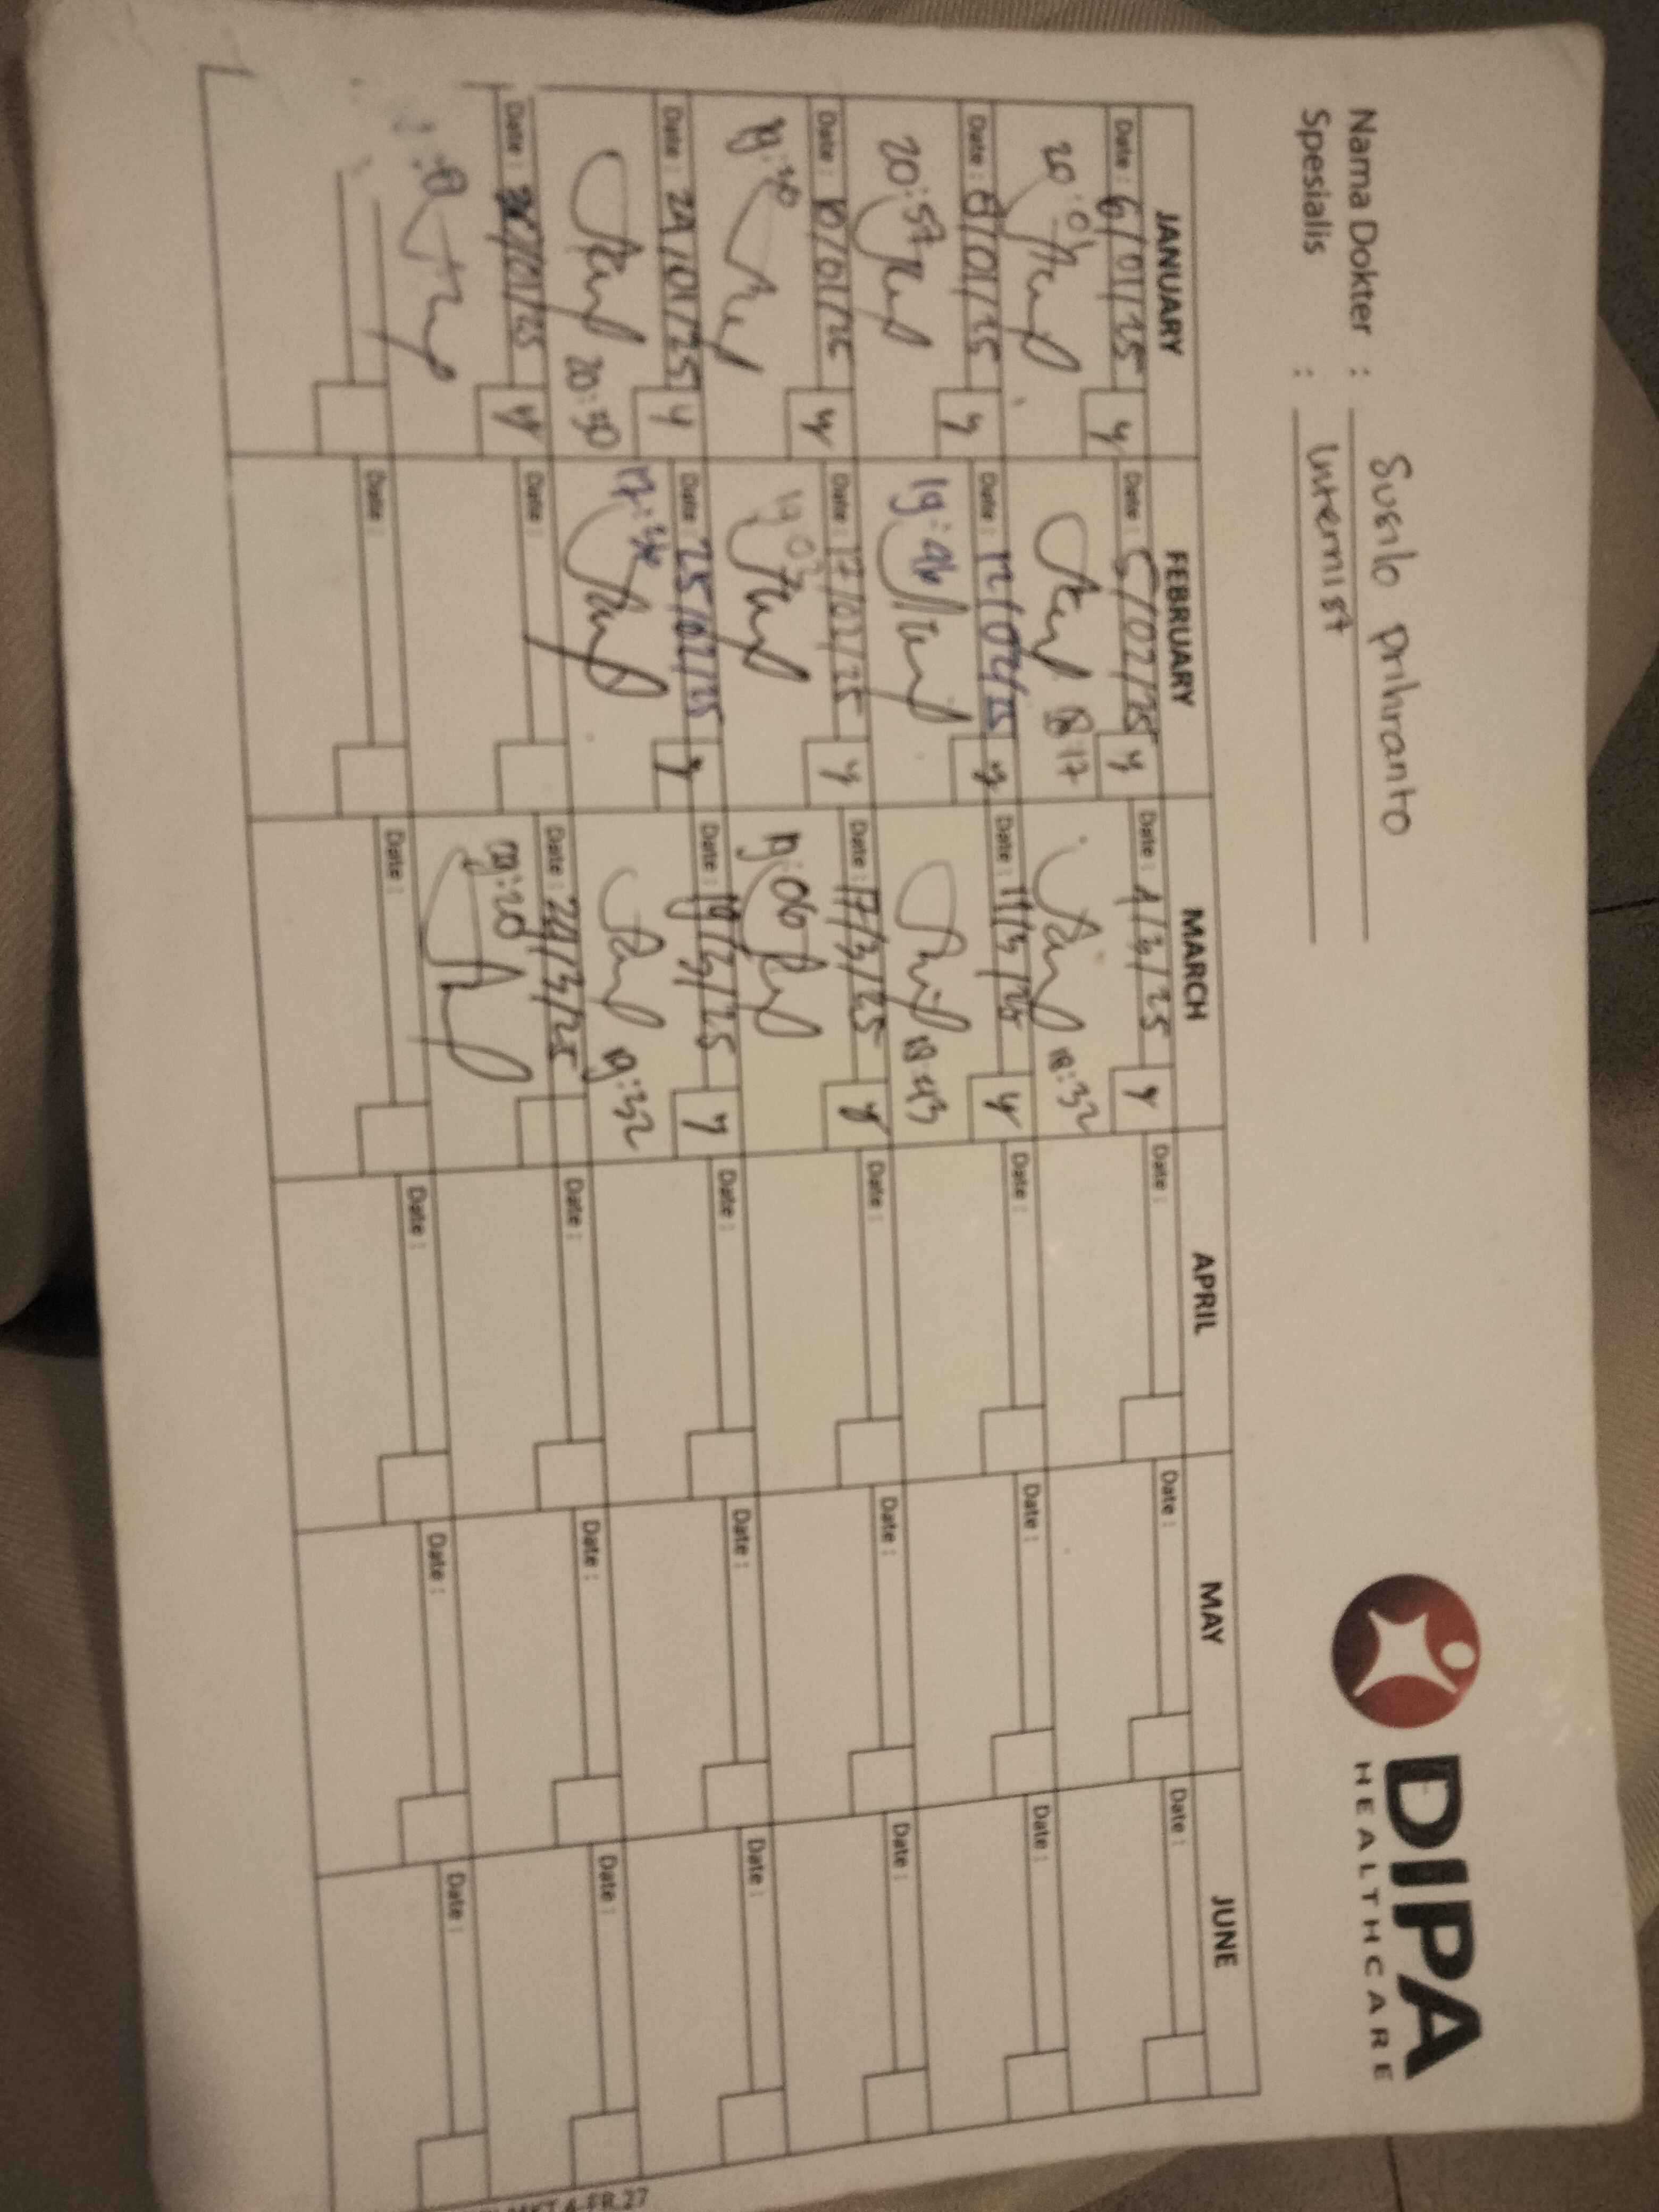 DIPA
HEALTHCARE
Nama Dokter : Susilo Prihranto
Spesialis : Internist
JANUARY FEBRUARY MARCH APRIL MAY JUNE
Date : 6/01/25 y Date : 5/02/25 y Date : 4/3/25 y Date : Date : Date :
20:01 18:17 18:32
Date : 8/01/25 y Date : 12/02/25 y Date : 11/3/25 y Date : Date : Date :
20:57 19:46 18:43
Date : 10/01/25 y Date : 17/02/25 y Date : 17/3/25 y Date : Date : Date :
19:30 19:03 19:06
Date : 21/01/25 y Date : 25/02/25 y Date : 19/3/25 y Date : Date : Date :
20:30 19:32
Date : /01/25 y Date : Date : 24/3/25 Date : Date : Date :
19:20
Date : Date : Date : Date : Date :
MKT.4-FR.27